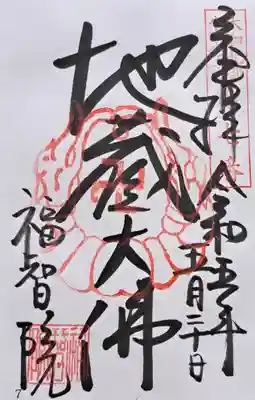 奉拝
令和五年
五月二十日
地蔵大佛
福智院
7